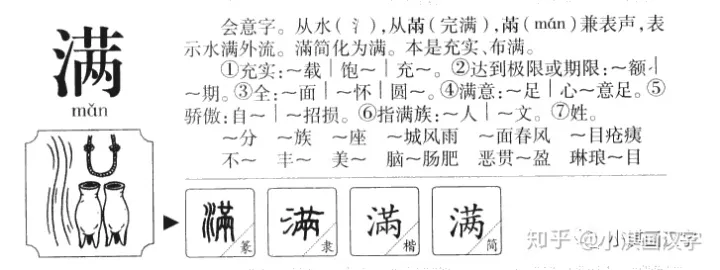 满
mǎn
会意字。从水(氵),从㒼(完满),㒼(mán)兼表声,表
示水满外流。滿简化为满。本是充实、布满。
①充实:～载│饱～│充～。②达到极限或期限:～额│
～期。③全:～面│～怀│圆～。④满意:～足│心～意足。⑤
骄傲:自～│～招损。⑥指满族:～人│～文。⑦姓。
～分 ～族 ～座 ～城风雨 ～面春风 ～目疮痍
不～ 丰～ 美～ 脑～肠肥 恶贯～盈 琳琅～目
滿 篆
滿 隶
滿 楷
满 简
知乎 @小淇画汉字